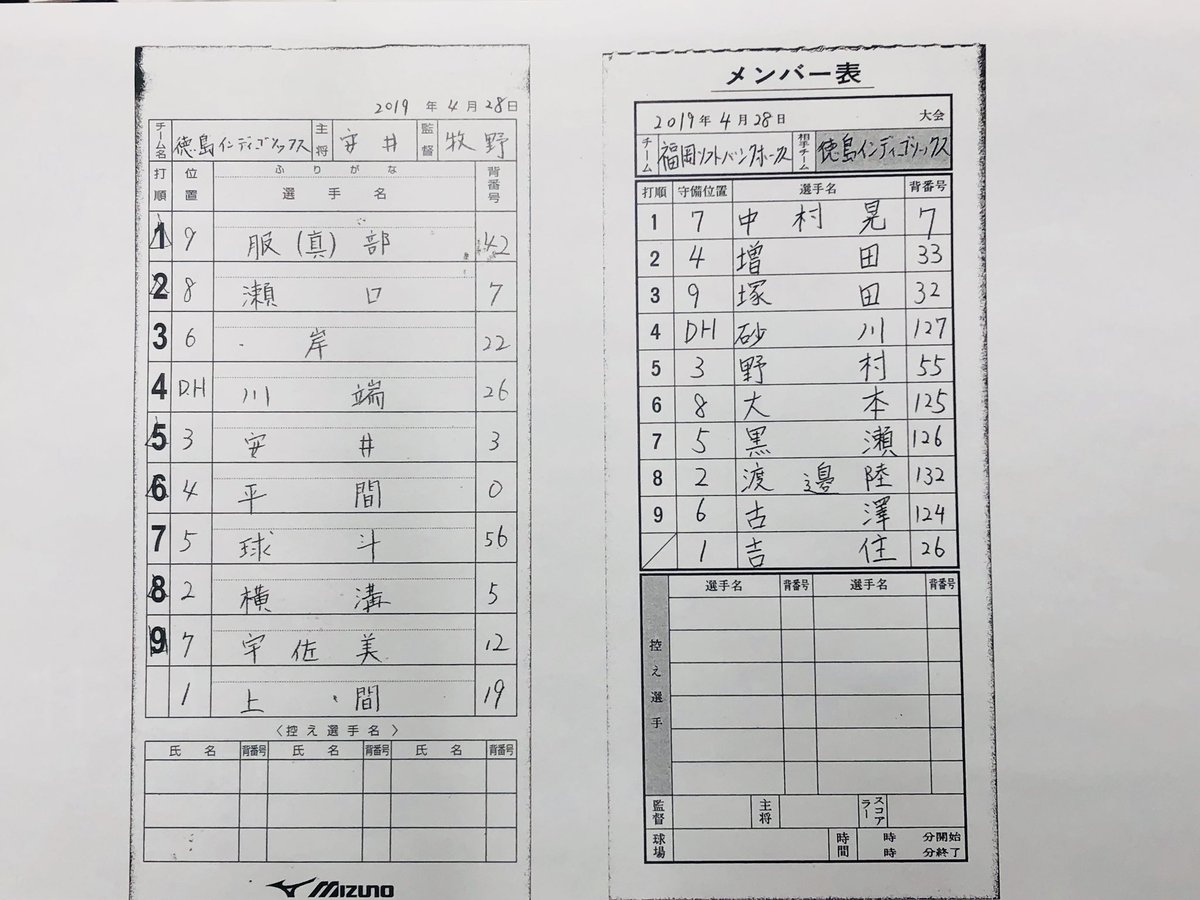 2019 年 4 月 28 日
チーム名 徳島インディゴソックス 主将 安井 監督 牧野
打順 位置 ふりがな 選手名 背番号
1 9 服(真)部 42
2 8 瀬口 7
3 6 岸 22
4 D.H 川端 26
5 3 安井 3
6 4 平間 0
7 5 球斗 56
8 2 横溝 5
9 7 宇佐美 12
1 上間 19
〈控え選手名〉
氏名 背番号 氏名 背番号 氏名 背番号
MIZUNO
メンバー表
2019年4月28日 大会
チーム 福岡ソフトバンクホークス 相手チーム 徳島インディゴソックス
打順 守備位置 選手名 背番号
1 7 中村晃 7
2 4 増田 33
3 9 塚田 32
4 DH 砂川 127
5 3 野村 55
6 8 大本 125
7 5 黒瀬 126
8 2 渡邉陸 132
9 6 古澤 124
1 吉住 26
控え選手 選手名 背番号 選手名 背番号
監督 主将 スコアラー
球場 時間 時 分開始
時 分終了